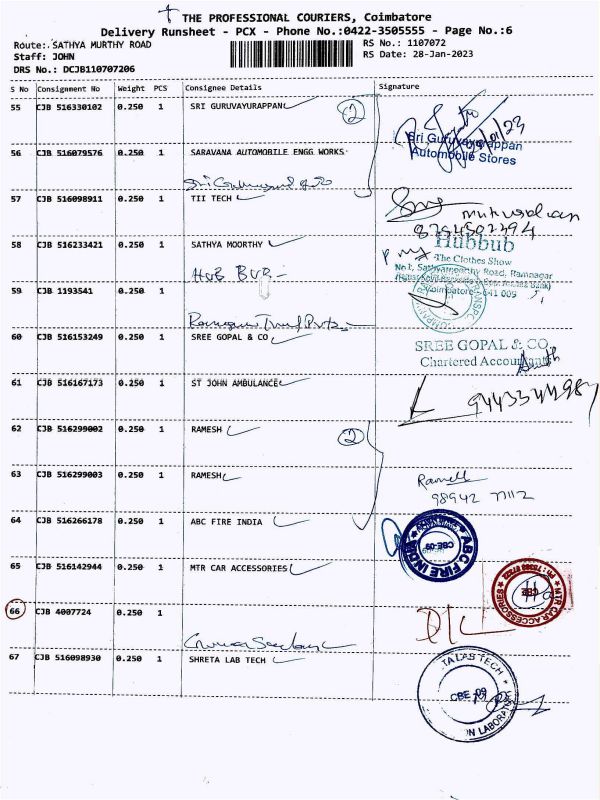 THE PROFESSIONAL COURIERS, Coimbatore
Delivery Runsheet - PCX - Phone No.:0422-3505555 - Page No.:6
Route: SATHYA MURTHY ROAD
RS No.: 1107072
Staff: JOHN
RS Date: 28-Jan-2023
DRS No.: DCJB110707206
S No Consignment No Weight PCS Consignee Details Signature
55 CJB 516330102 0.250 1 SRI GURUVAYURAPPAN
2
Sri Guruvayurappan
Automobile Stores
56 CJB 516079576 0.250 1 SARAVANA AUTOMOBILE ENGG WORKS
57 CJB 516098911 0.250 1 TII TECH
8754502394
58 CJB 516233421 0.250 1 SATHYA MOORTHY
Hubbub
The Clothes Show
No.1, Sathyamoorthy Road, Ramnagar
Coimbatore - 641 009
HUB BUB
59 CJB 1193541 0.250 1
60 CJB 516153249 0.250 1 SREE GOPAL & CO
SREE GOPAL & CO
Chartered Accountants
61 CJB 516167173 0.250 1 ST JOHN AMBULANCE
62 CJB 516299002 0.250 1 RAMESH
2
63 CJB 516299003 0.250 1 RAMESH
Ramesh
98942
64 CJB 516266178 0.250 1 ABC FIRE INDIA
ABC FIRE INDIA
CBE-09
65 CJB 516142944 0.250 1 MTR CAR ACCESSORIES
MTR CAR ACCESSORIES
CBE
66 CJB 4007724 0.250 1
67 CJB 516098930 0.250 1 SHRETA LAB TECH
CBE-09